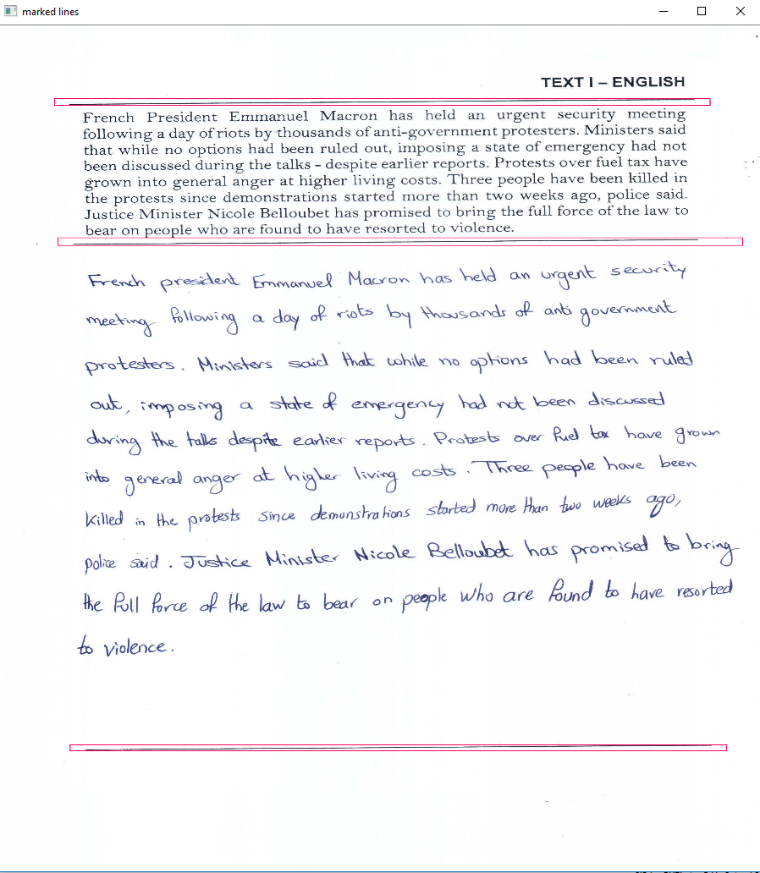 marked lines
TEXT I – ENGLISH
French President Emmanuel Macron has held an urgent security meeting
following a day of riots by thousands of anti-government protesters. Ministers said
that while no options had been ruled out, imposing a state of emergency had not
been discussed during the talks – despite earlier reports. Protests over fuel tax have
grown into general anger at higher living costs. Three people have been killed in
the protests since demonstrations started more than two weeks ago, police said.
Justice Minister Nicole Belloubet has promised to bring the full force of the law to
bear on people who are found to have resorted to violence.
French president Emmanuel Macron has held an urgent security
meeting following a day of riots by thousands of anti government
protesters. Ministers said that while no options had been ruled
out, imposing a state of emergency had not been discussed
during the talks despite earlier reports. Protests over fuel tax have grown
into general anger at higher living costs. Three people have been
killed in the protests since demonstrations started more than two weeks ago,
police said. Justice Minister Nicole Belloubet has promised to bring
the full force of the law to bear on people who are found to have resorted
to violence.